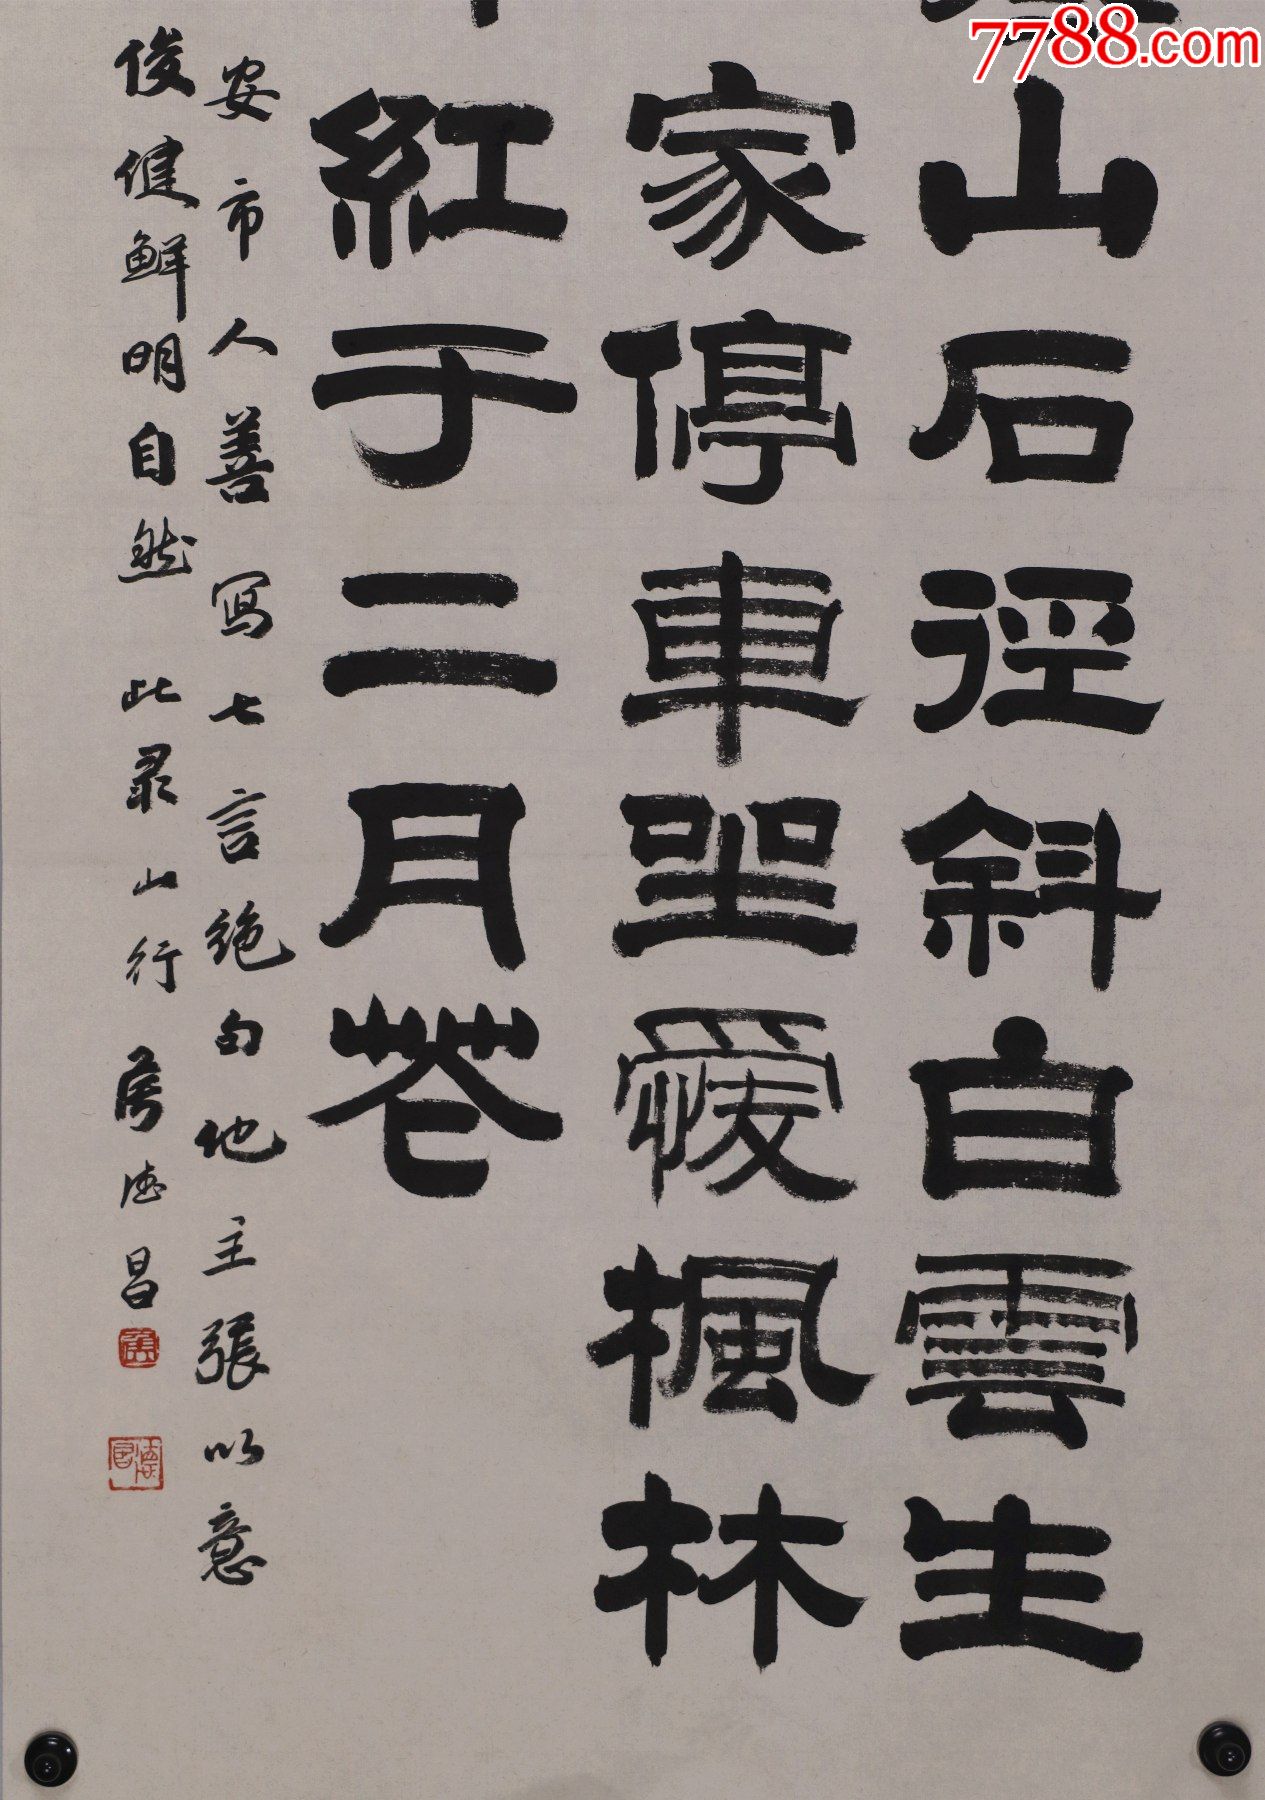 7788.com
山石徑斜白雲生
家停車坐愛楓林
紅于二月花
安市人善寫七言絶句他主張以意
俊健鮮明自然 此录山行 房德昌